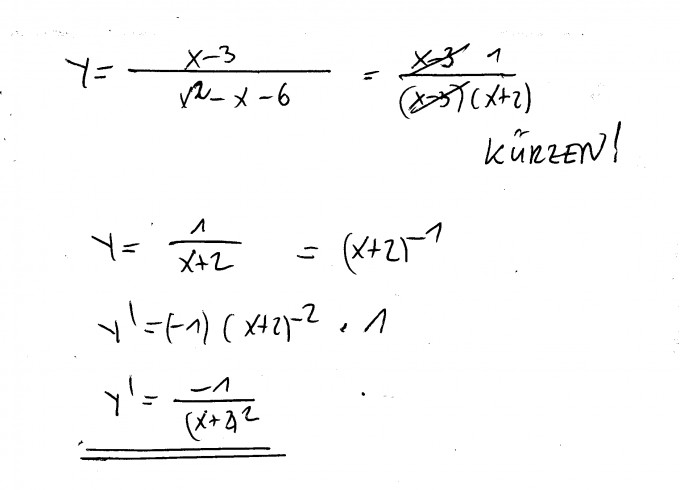 y = (x-3)/(x²-x-6) = (x-3) 1/((x-3)(x+2))
KÜRZEN!
y = 1/(x+2) = (x+2)⁻¹
y' = (-1)(x+2)⁻² · 1
y' = -1/(x+2)²